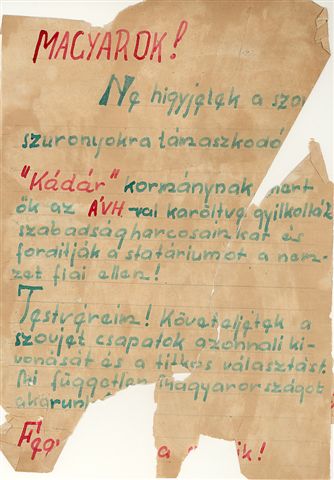 MAGYAROK!
Ne higyjétek a szo
szuronyokra támaszkodó
"Kádár" kormánynak mert
ők az ÁVH-val karöltve gyilkolták
szabadságharcosainkat és
fordítják a statáriumot a nem-
zet fiai ellen!
Testvéreim! Követeljétek a
szovjet csapatok azonnali ki-
vonását és a titkos választást.
Mi független Magyarországot
akarun
a
k!